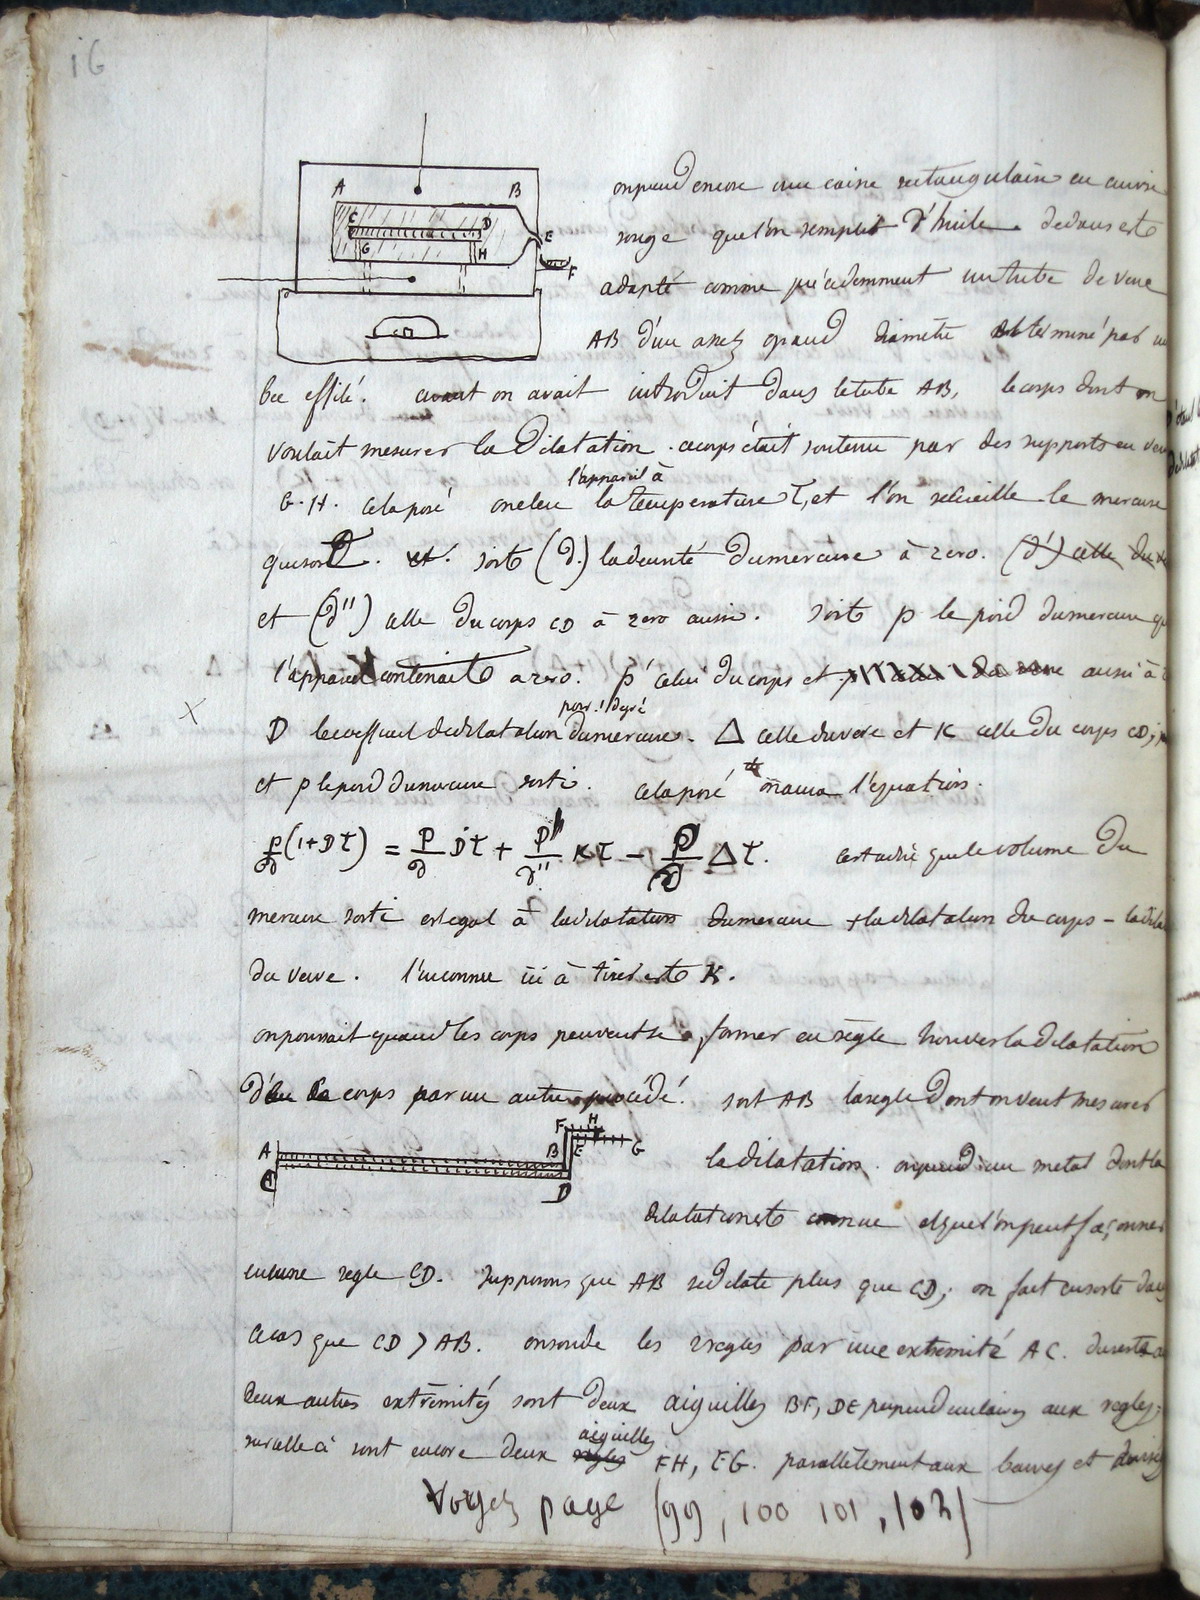 16
A B
C D
G H
E
F
on prend encore une caisse rectangulaire en cuivre
rouge que l'on remplit d'huile. dedans est
adapté comme précédemment un tube de verre
AB d'un assez grand diamètre terminé par un
bec effilé. avant on avait introduit dans le tube AB, le corps dont on
voulait mesurer la dilatation. ce corps était soutenu par des supports en verre
G.H. cela posé on eleve l'appareil à la température T, et l'on recueille le mercure
qui sort. soit (d.) la densité du mercure à zero. (d') celle du
et (d'') celle du corps CD à zero aussi. soit p le poid du mercure
l'appareil contenait a zero. p' celui du corps et aussi à
D le coefficient de dilatation du mercure pour 1 degré. Δ celle du verre et K celle du corps CD;
et p le poid du mercure sorti. cela posé on aura l'équation.
p/d (1+DT) = P/d DT + P''/d'' KT - P/d ΔT. c'est à dire que le volume du
mercure sorti est egal à la dilatation du mercure + la dilatation du corps - la
du verre. l'inconnue ici à tirer est K.
on pourrait quand les corps peuvent se former en règle trouver la dilatation
corps par un autre procédé. soit AB la regle dont on veut mesurer
A B C D E F H G
la dilatation. on prend un metal dont la
dilatation est connue et que l'on peut façonner
en une regle CD. supposons que AB se dilate plus que CD; on fait en sorte dans
ce cas que CD > AB. on soude les 2 regles par une extremité AC.
deux autres extrêmités sont deux aiguilles BF, DE perpendiculaires aux regles;
sur celle ci sont encore deux aiguilles FH, EG. parallèlement aux barres et
Voyez page (99, 100 101, 102)